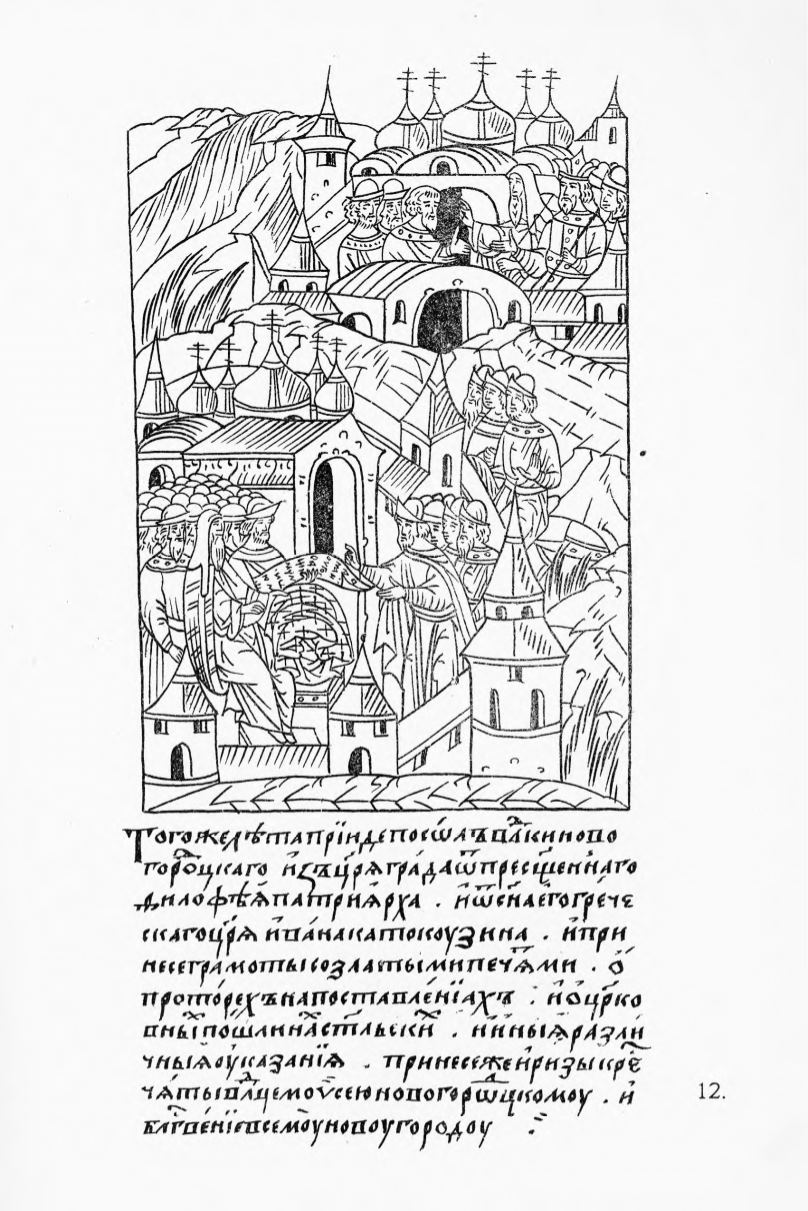 Тогожелѣтапрїидепосо́лъвлⷣкиново
горѡⷣцкаго и҆зъцр҃ѧградаѿпресщ҃еннаго
Филофѣѧпатриѧрха . и҆ѿсн҃аего҆грече
скагоцр҃ѧ и҆ва́накатокоузина . и҆при
несеграмотысозлатымипеча́ѧми . ѽ
протóрехънапоставле́нїахъ . и҆ѽцр҃ко
вныⷯпошлинаⷯст҃льскиⷯ . и҆и҆ныѧразли
чныѧоу҆казанїѧ . принесежеи҆ризыкрⷭ҇е
чатывлⷣцемоѵсеюновогорѡⷣцкомоу . и҆
блг҃венїевсемоу҆новоугородоу
12.